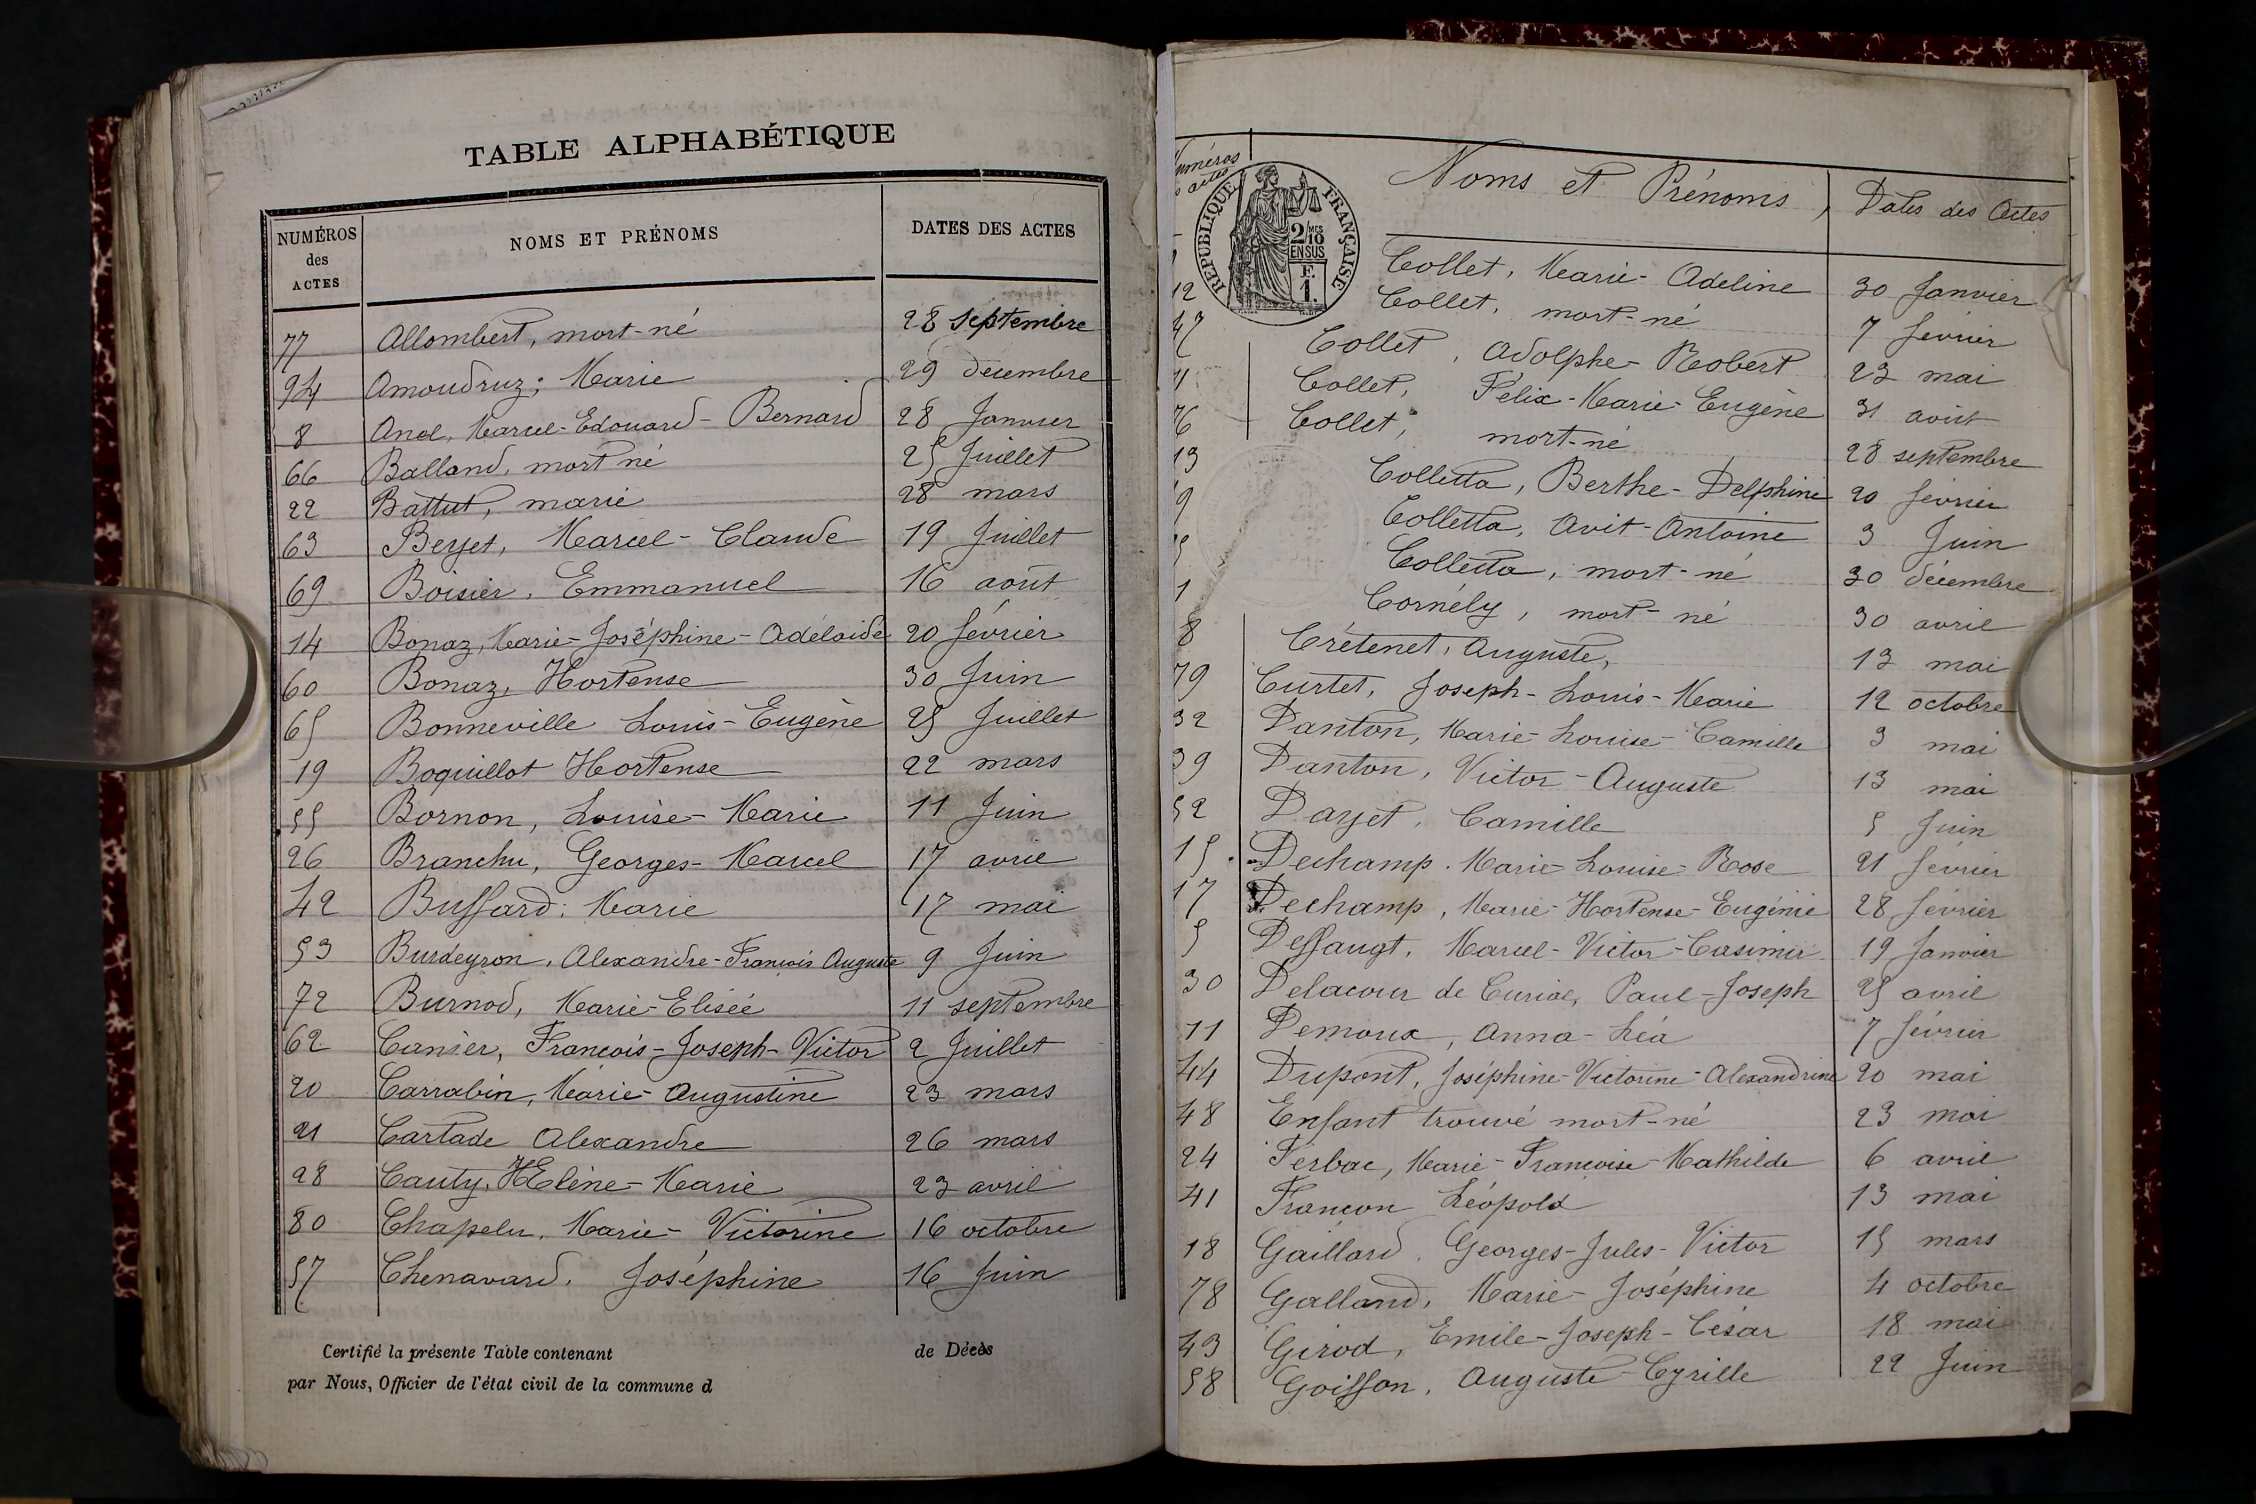 TABLE ALPHABÉTIQUE
NUMÉROS des ACTES NOMS ET PRÉNOMS DATES DES ACTES
77 Allombert, mort-né 28 septembre
94 Amoudruz, Marie 29 décembre
8 Anel, Marcel-Edouard-Bernard 28 Janvier
66 Balland, mort né 25 Juillet
22 Battut, marie 28 mars
63 Beyet, Marcel-Claude 19 Juillet
69 Boisier, Emmanuel 16 août
14 Bonaz, Marie-Joséphine-Adélaïde 20 février
60 Bonaz, Hortense 30 Juin
65 Bonneville Louis-Eugène 25 Juillet
19 Boquillot Hortense 22 mars
55 Bornon, Louise-Marie 11 Juin
26 Branchu, Georges-Marcel 17 avril
42 Buffard, Marie 17 mai
53 Burdeyron, Alexandre-François Auguste 9 Juin
72 Burnod, Marie-Elisée 11 septembre
62 Canier, François-Joseph-Victor 2 Juillet
20 Carrabin, Marie-Augustine 23 mars
21 Cartade Alexandre 26 mars
28 Cauty, Hélène-Marie 23 avril
80 Chapelu, Marie-Victorine 16 octobre
57 Chenavard, Joséphine 16 Juin
Certifié la présente Table contenant de Décès
par Nous, Officier de l'état civil de la commune d
Numéros actes Noms et Prénoms Dates des Actes
REPUBLIQUE FRANÇAISE
2/10 MES
EN SUS
F.
1.
Collet, Marie-Adeline 30 Janvier
12 Collet, mort-né 7 février
47 Collet, Adolphe-Robert 23 mai
Collet, Félix-Marie-Eugène 31 août
76 Collet, mort-né 28 septembre
13 Colletta, Berthe-Delphine 20 février
Colletta, Avit-Antoine 3 Juin
Colletta, mort-né 30 décembre
Cornély, mort-né 30 avril
8 Crétenet, Auguste, 13 mai
79 Curtet, Joseph-Louis-Marie 12 octobre
32 Danton, Marie-Louise-Camille 3 mai
39 Danton, Victor-Auguste 13 mai
52 Dayet, Camille 5 Juin
15 Dechamp, Marie-Louise-Rose 21 février
17 Dechamp, Marie-Hortense-Eugénie 28 février
5 Deffaugt, Marcel-Victor-Casimir 19 Janvier
30 Delacour de Curial, Paul-Joseph 25 avril
11 Demoux, Anna-Léa 7 février
44 Dupont, Joséphine-Victorine-Alexandrine 20 mai
48 Enfant trouvé mort-né 23 mai
24 Ferbac, Marie-Françoise-Mathilde 6 avril
41 Françon Léopold 13 mai
18 Gaillard, Georges-Jules-Victor 15 mars
78 Galland, Marie-Joséphine 4 octobre
43 Girod, Emile-Joseph-César 18 mai
58 Goiffon, Auguste-Cyrille 22 Juin